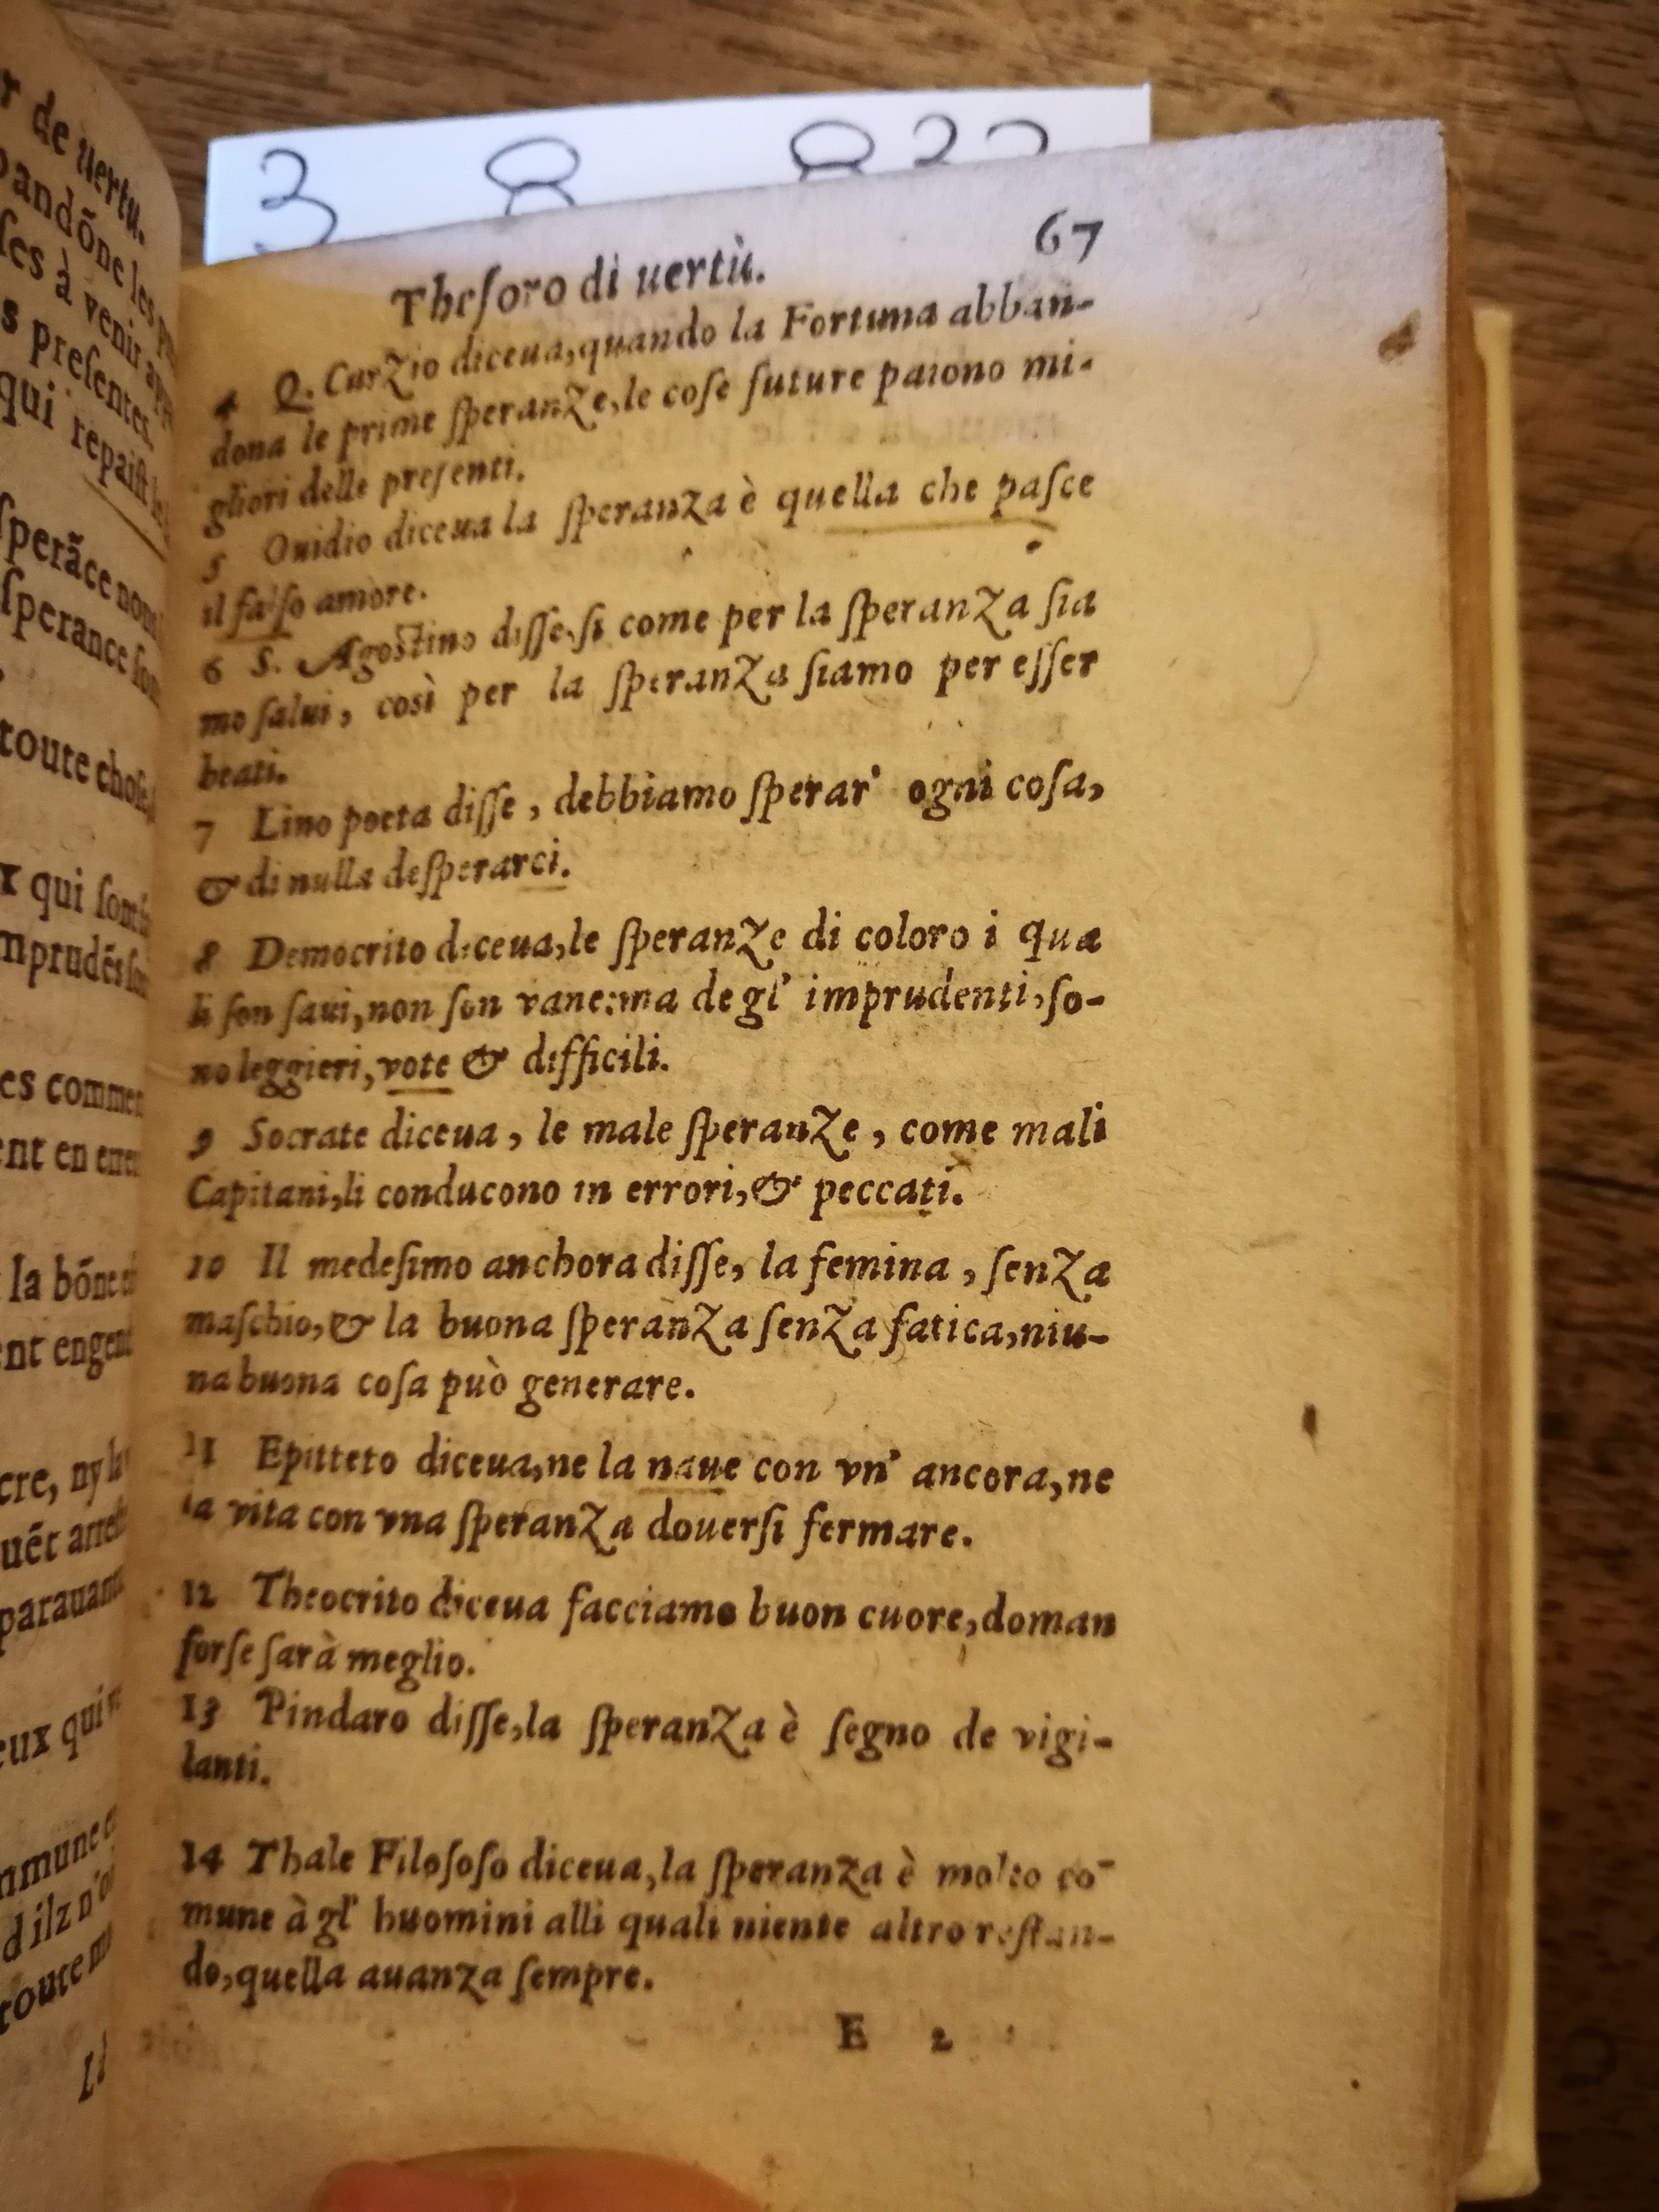 r de uertu.
andōne les
ses à venir
s presentes.
qui repaist
sperāce
sperance
toute chose
x qui sont
mprudēs
es commen
ent en
la bōne
nt
cre, ny la
uēt
parauant
eux qui
nmune
d ilz n'
toute
3 8 822
67
Theſoro di uertù.
4 Q. CurZio diceua,quando la Fortuna abban-
dona le prime ſperanZe,le coſe future paiono mi-
gliori delle preſenti.
5 Ouidio diceua la ſperanZa è quella che paſce
il falſo amore.
6 S. Agoſtino diſſe,ſi come per la ſperanZa ſia
mo ſalui, così per la ſperanZa ſiamo per eſſer
beati.
7 Lino poeta diſſe , debbiamo ſperar' ogni coſa,
& di nulla deſperarci.
8 Democrito diceua,le ſperanZe di coloro i qua
li ſon ſaui,non ſon vane:ma de gl' imprudenti,ſo-
no leggieri,vote & difficili.
9 Socrate diceua , le male ſperanZe , come mali
Capitani,li conducono in errori,& peccati.
10 Il medeſimo anchora diſſe, la femina , ſenZa
maſchio,& la buona ſperanZa ſenZa fatica,niu-
na buona coſa può generare.
11 Epitteto diceua,ne la naue con vn' ancora,ne
la vita con vna ſperanZa douerſi fermare.
12 Theocrito diceua facciamo buon cuore,doman
forſe ſarà meglio.
13 Pindaro diſſe,la ſperanZa è ſegno de vigi-
lanti.
14 Thale Filoſoſo diceua,la ſperanza è molto co-
mune à gl' huomini alli quali niente altro reſtan-
do,quella auanza ſempre.
E 2